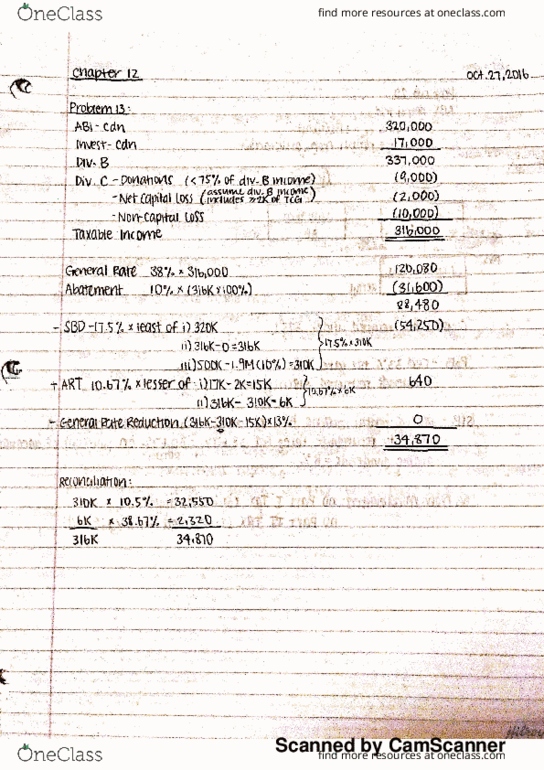 OneClass
find more resources at oneclass.com
Chapter 12
Oct. 27, 2016
Problem 13:
ABI - Cdn 320,000
Invest - Cdn 17,000
Div. B 337,000
Div. C - Donations (<75% of div. B income) (9,000)
- Net Capital Loss (assume div. B income includes ≥2K of TCG) (2,000)
- Non-Capital Loss (10,000)
Taxable Income 316,000
General Rate 38% × 316,000 120,080
Abatement 10% × (316K × 100%) (31,600)
88,480
- SBD - 17.5% × least of i) 320K (54,250)
ii) 316K - 0 = 316K } 17.5% × 310K
iii) 500K - 1.9M (10%) = 310K
+ ART 10.67% × lesser of: i) 17K - 2K = 15K } 10.67% × 6K 640
ii) 316K - 310K = 6K
- General Rate Reduction (316K - 310K - 15K) × 13% 0
34,870
Reconciliation:
310K × 10.5% = 32,550
6K × 38.67% = 2,320
316K 34,870
Scanned by CamScanner
OneClass
find more resources at oneclass.com